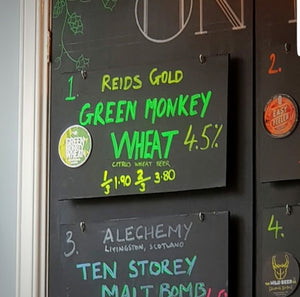 ON
1. REIDS GOLD
GREEN MONKEY
WHEAT 4.5%
CITRUS WHEAT BEER
⅓ 1.90 ⅔ 3.80
GREEN
MONKEY
WHEAT
2.
3. ALECHEMY
LIVINGSTON, SCOTLAND
TEN STOREY
MALT BOMB
4.
WILD BEER